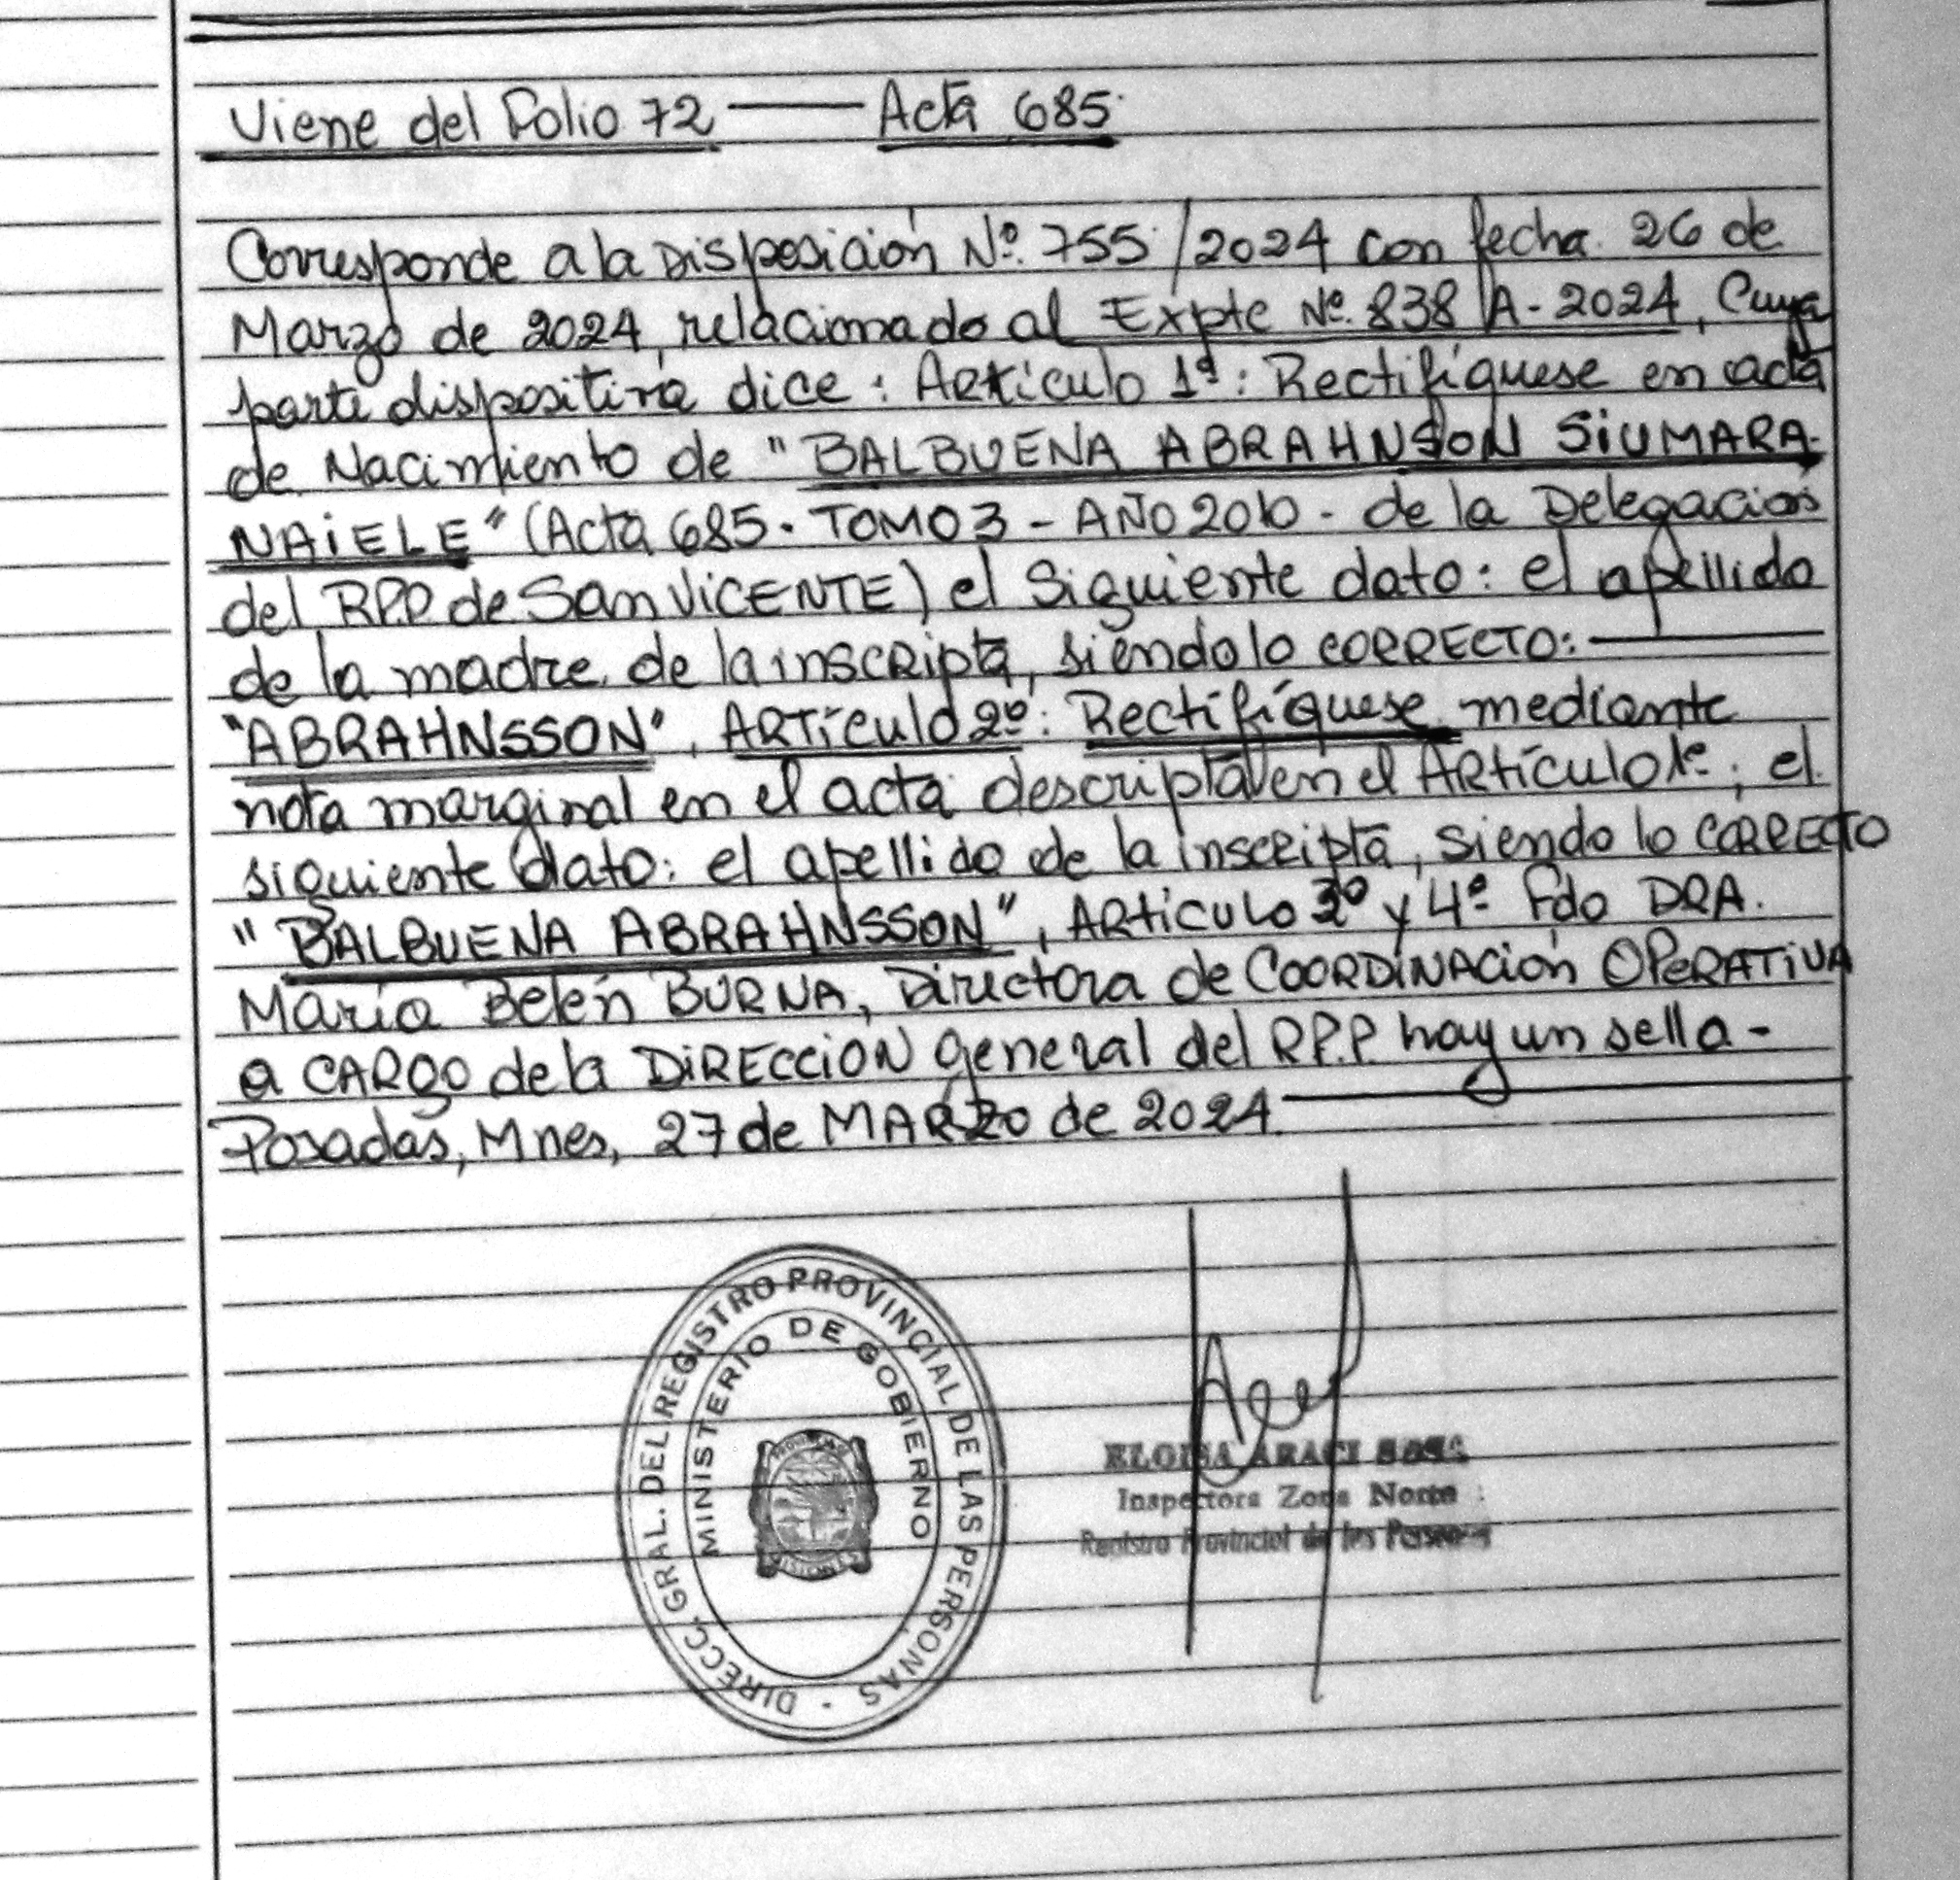 Viene del Folio 72 —— Acta 685
Corresponde a la Disposición Nº 755/2024 con fecha 26 de
Marzo de 2024, relacionado al Expte Nº 838/A-2024, Cuya
parte dispositiva dice: Artículo 1º: Rectifíquese en acta
de Nacimiento de "BALBUENA ABRAHNSON SiUMARA
NAiELE" (Acta 685. TOMO 3 - AÑO 2010 - de la Delegación
del R.P.P de San ViCENTE) el Siguiente dato: el apellido
de la madre de la inscripta, siendo lo CORRECTO: ——
"ABRAHNSSON", ARTículo 2º: Rectifíquese mediante
nota marginal en el acta descripta en el ARtículo 1º; el
siguiente dato: el apellido de la inscripta, siendo lo CORRECTO
"BALBUENA ABRAHNSSON", ARtículo 3º y 4º Fdo DRA.
María Belén BURNA, Directora de COORDiNACión OPeRATiVA
a CARGO de la DiRECCiÓN general del R.P.P. hay un sello -
Posadas, Mnes, 27 de MARZO de 2024 ——
DIRECC. GRAL. DEL REGISTRO PROVINCIAL DE LAS PERSONAS -
MINISTERIO DE GOBIERNO
ELOISA ARACI
Inspectora Zona Norte
Registro Provincial de las Personas